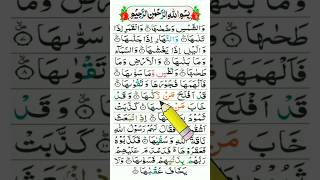 بِسْمِ اللهِ الرَّحْمٰنِ الرَّحِيْمِ
وَالشَّمْسِ وَضُحٰىهَا وَالْقَمَرِ اِذَا
تَلٰىهَا وَالنَّهَارِ اِذَا جَلّٰىهَا
وَالَّيْلِ اِذَا يَغْشٰىهَا وَالسَّمَآءِ
وَمَا بَنٰىهَا وَالْاَرْضِ وَمَا
طَحٰىهَا وَنَفْسٍ وَّمَا سَوّٰىهَا
فَاَلْهَمَهَا فُجُوْرَهَا وَتَقْوٰىهَا
قَدْ اَفْلَحَ مَنْ زَكّٰىهَا وَقَدْ
خَابَ مَنْ دَسّٰىهَا كَذَّبَتْ
ثَمُوْدُ اِذِ انْۢبَعَثَ
اَشْقٰىهَا فَقَالَ لَهُمْ رَسُوْلُ اللهِ
نَاقَةَ اللهِ وَسُقْيٰهَا فَكَذَّبُوْهُ
فَعَقَرُوْهَا فَدَمْدَمَ عَلَيْهِمْ
رَبُّهُمْ بِذَنْۢبِهِمْ فَسَوّٰىهَا وَلَا
يَخَافُ عُقْبٰهَا